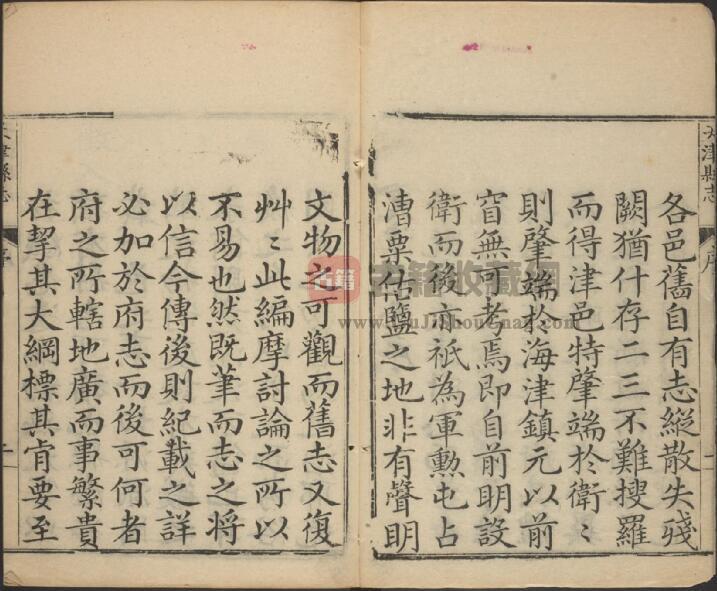 天津縣志
序
各邑舊自有志縱散失殘
闕猶什存二三不難搜羅
而得津邑特肇端於衛〻
則肇端於海津鎮元以前
窅無可考焉即自前明設
衛而後亦祇為軍勲屯占
漕粟估鹽之地非有聲明
文物之可觀而舊志又復
艸〻此編摩討論之所以
不易也然既筆而志之將
以信今傳後則紀載之詳
必加於府志而後可何者
府之所轄地廣而事繁貴
在挈其大綱標其肯要至
天津縣志
序
古籍
古籍收藏网
www.GuJiShouCang.com